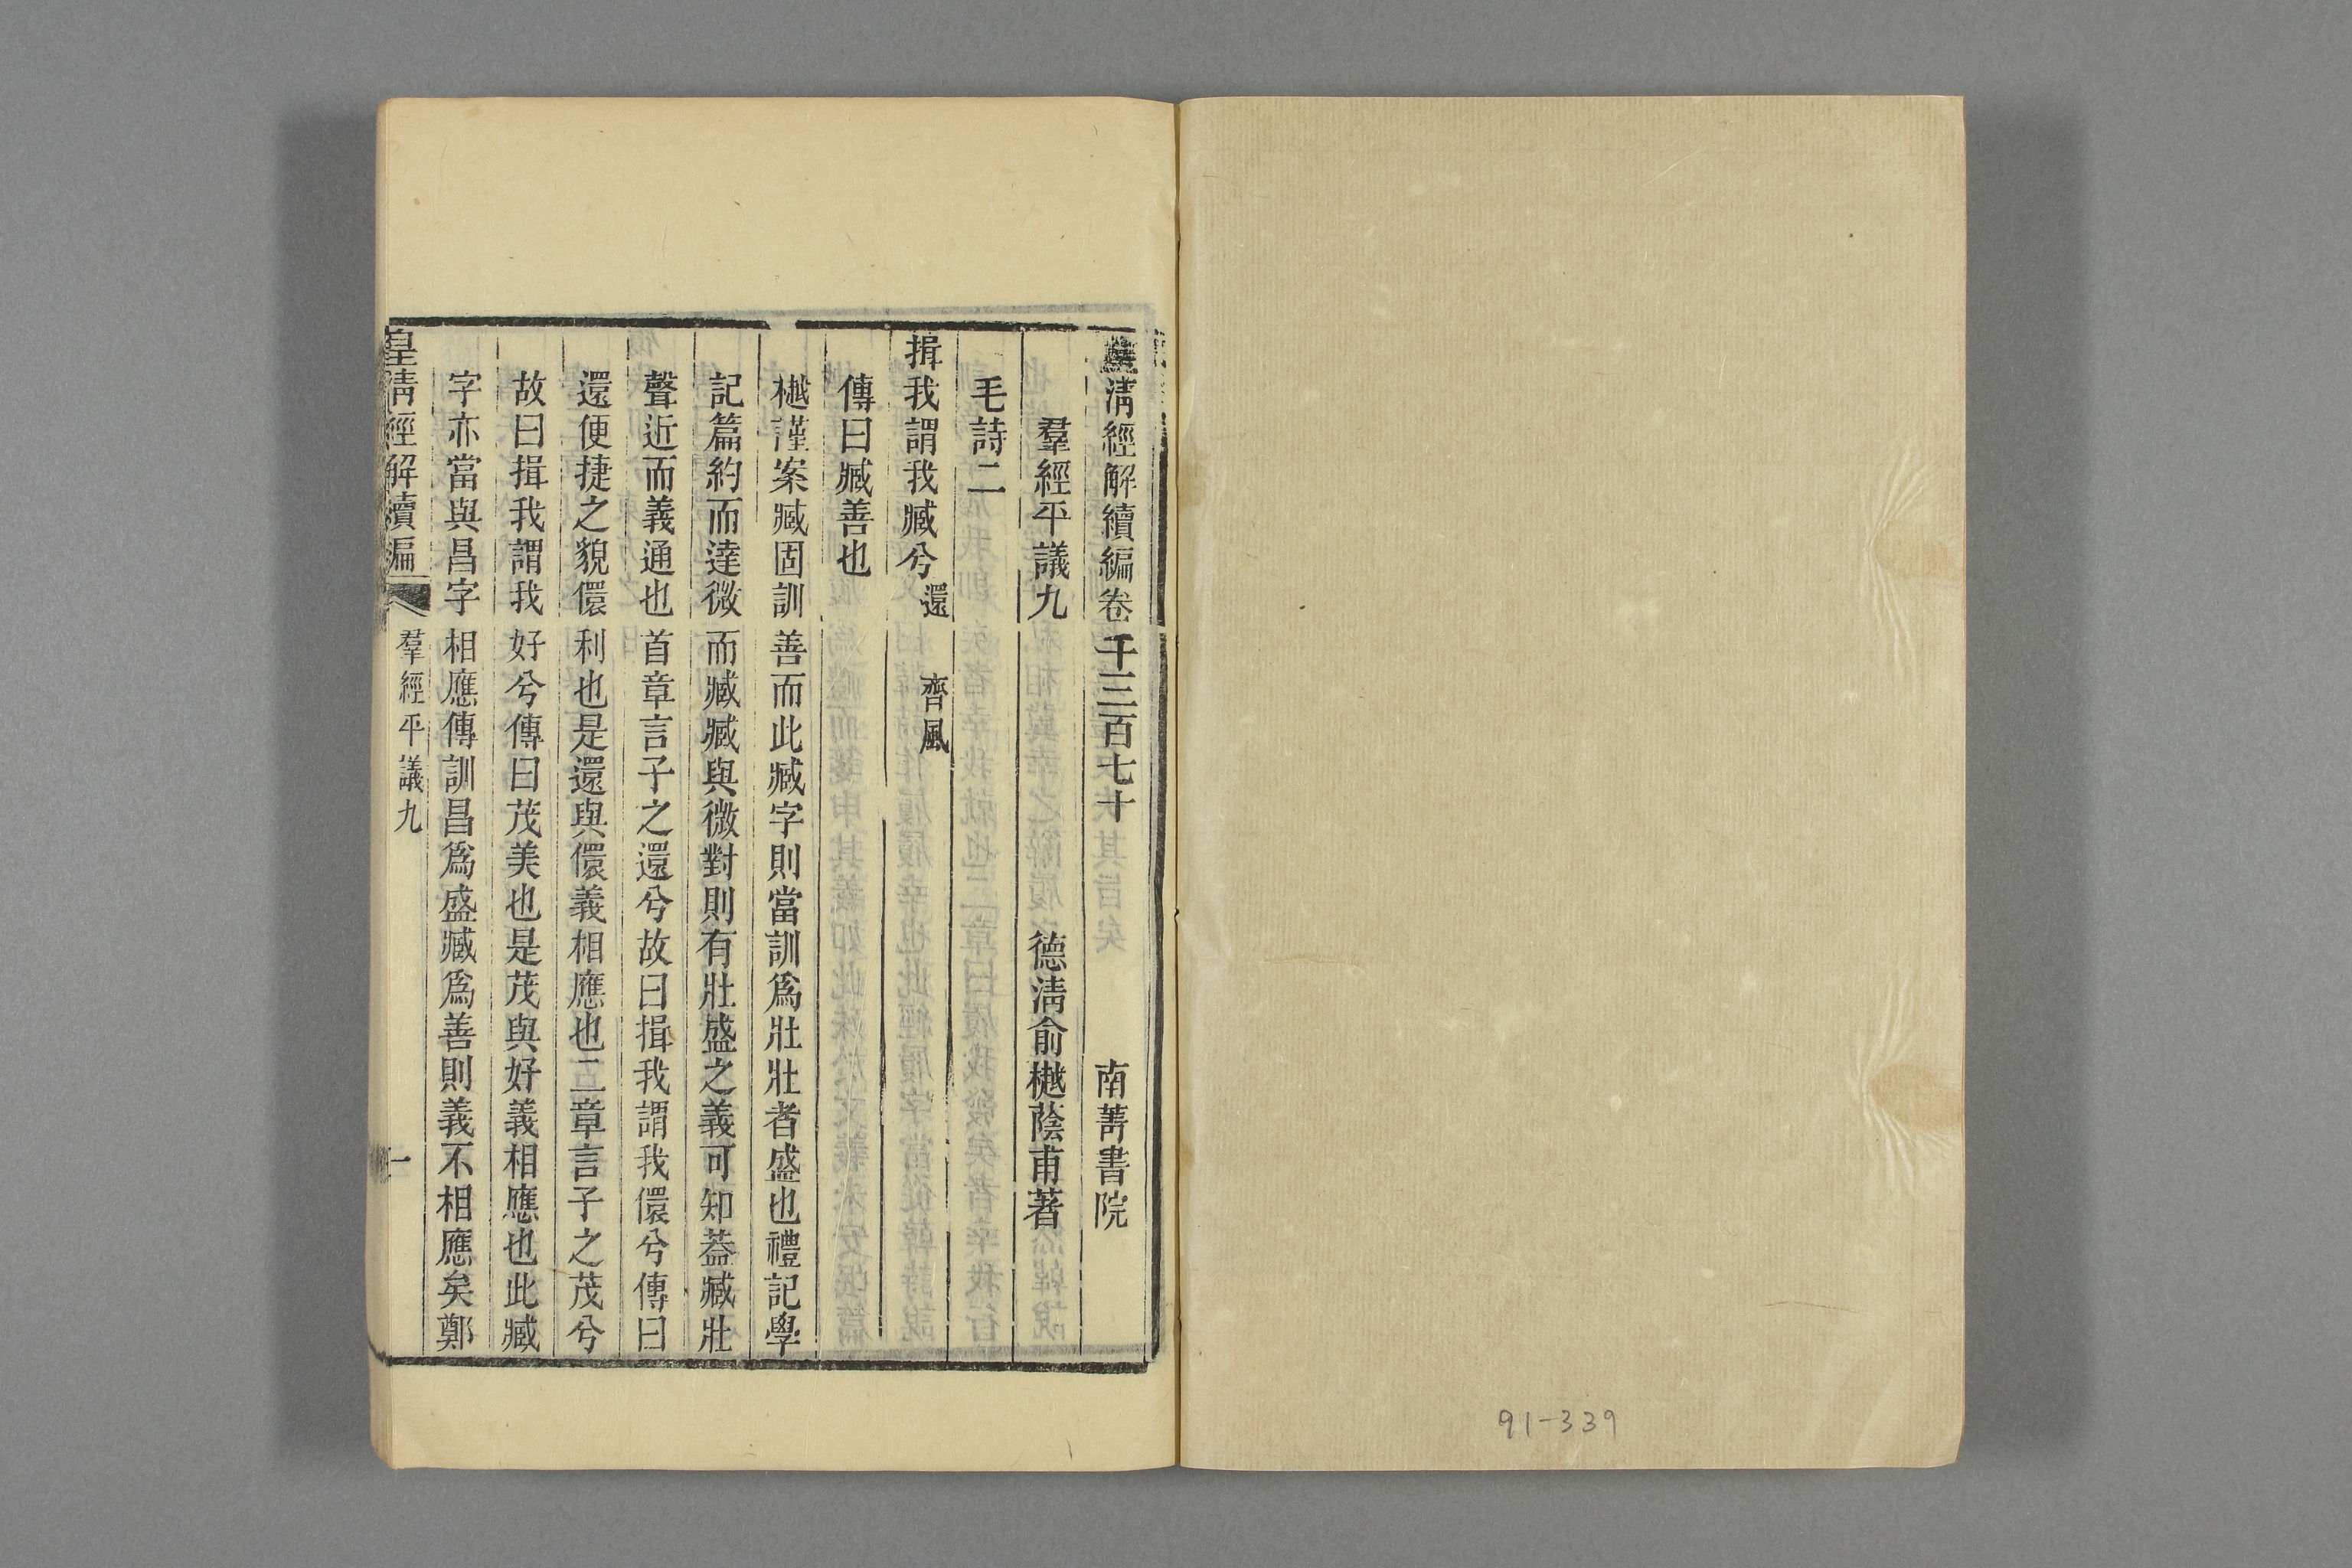 皇淸經解續編卷千三百七十 南菁書院
羣經平議九 德淸俞樾蔭甫著
毛詩二
揖我謂我臧兮 還 齊風
傳曰臧善也
樾謹案臧固訓善而此臧字則當訓爲壯壯者盛也禮記學
記篇約而達微而臧臧與微對則有壯盛之義可知葢臧壯
聲近而義通也首章言子之還兮故曰揖我謂我儇兮傳曰
還便捷之貌儇利也是還與儇義相應也二章言子之茂兮
故曰揖我謂我好兮傳曰茂美也是茂與好義相應也此臧
字亦當與昌字相應傳訓昌爲盛臧爲善則義不相應矣鄭
皇淸經解續編 羣經平議九 一
91-339